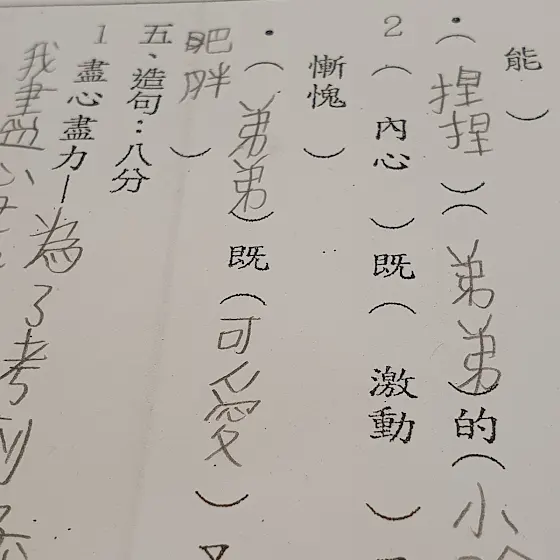 能）
・（捏捏）（弟弟）的（小
2（內心）既（激動）
慚愧）
・（弟弟）既（可愛）又
肥胖）
五、造句：八分
1 盡心盡力—為了考到
我盡心